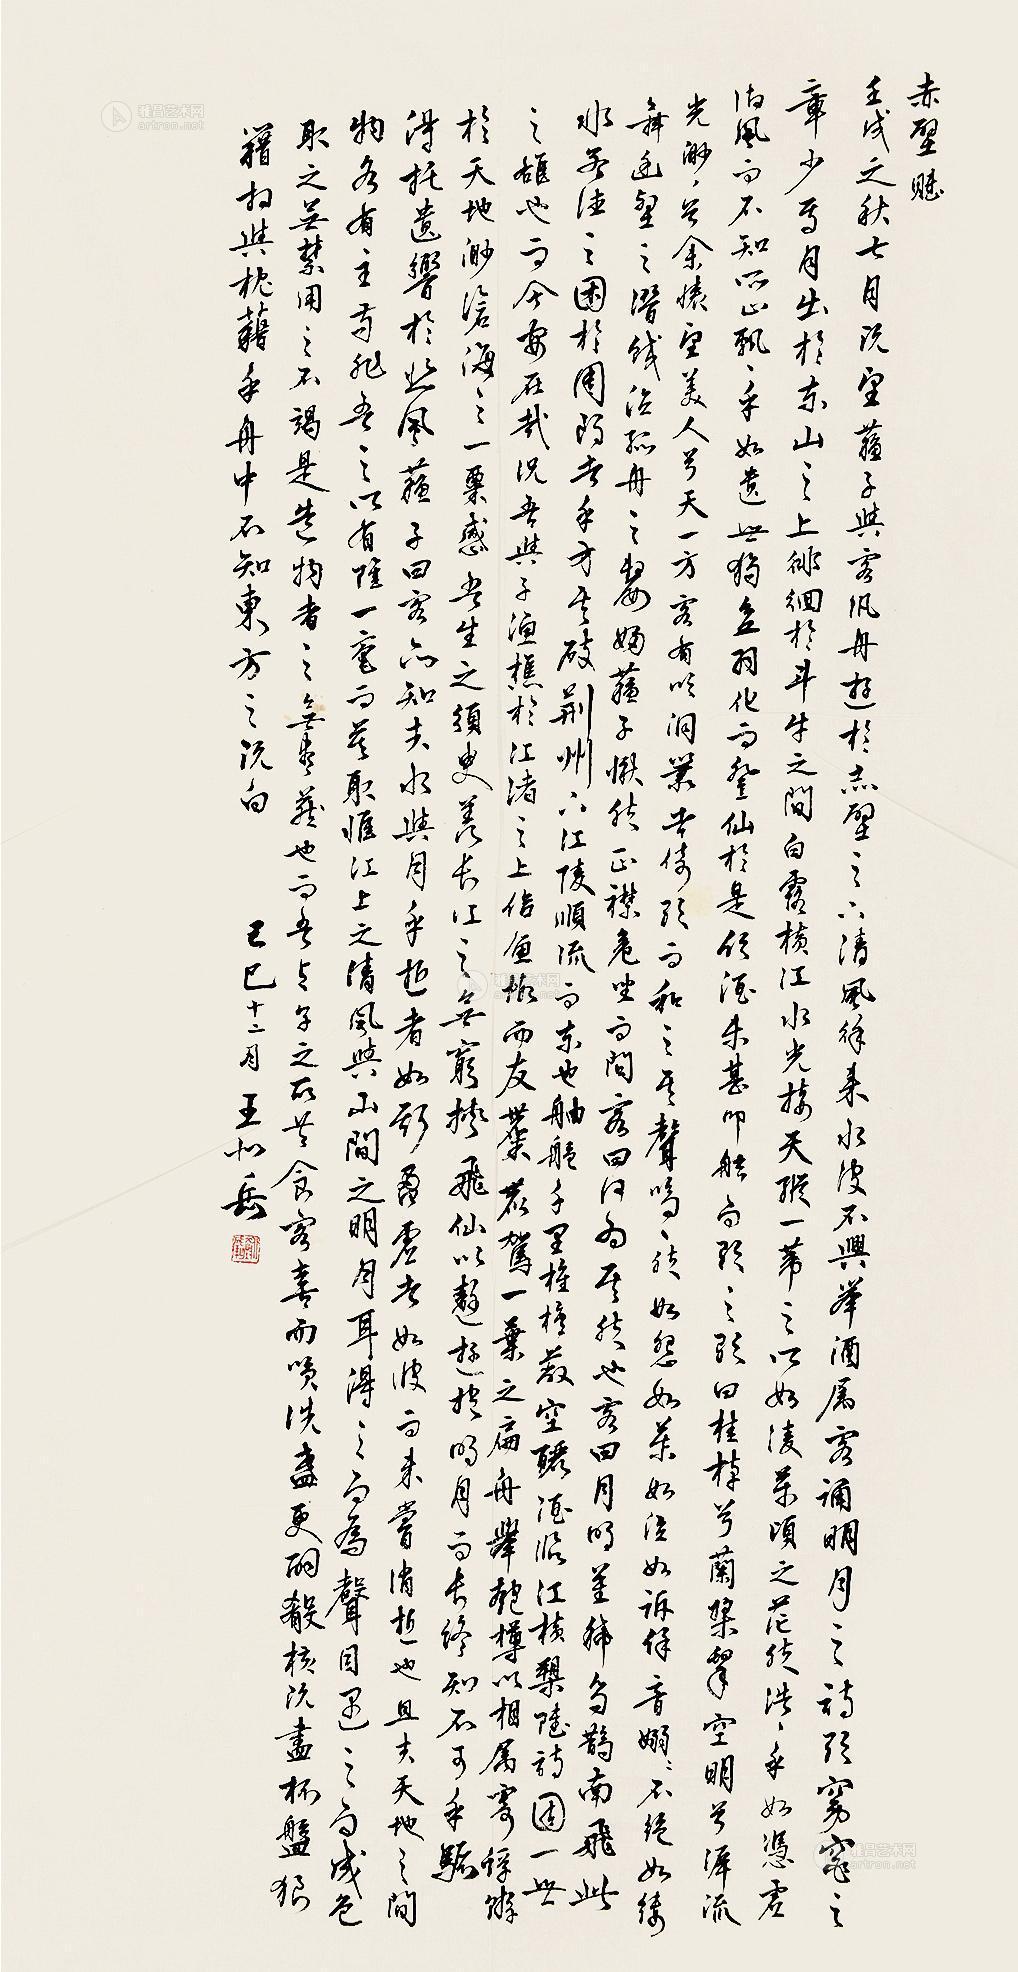 赤壁賦
壬戌之秋七月既望蘇子與客泛舟遊於赤壁之下清風徐來水波不興舉酒屬客誦明月之詩歌窈窕之
章少焉月出於東山之上徘徊於斗牛之間白露橫江水光接天縱一葦之所如凌萬頃之茫然浩、乎如馮虛
御風而不知所止飄、乎如遺世獨立羽化而登仙於是飲酒樂甚叩舷而歌之歌曰桂棹兮蘭槳擊空明兮泝流
光渺、兮余懷望美人兮天一方客有吹洞簫者倚歌而和之其聲嗚、然如怨如慕如泣如訴餘音嫋、不絕如縷
舞幽壑之潛蛟泣孤舟之嫠婦蘇子愀然正襟危坐而問客曰何為其然也客曰月明星稀烏鵲南飛此
非孟德之困於周郎者乎方其破荊州下江陵順流而東也舳艫千里旌旗蔽空釃酒臨江橫槊賦詩固一世
之雄也而今安在哉況吾與子漁樵於江渚之上侶魚蝦而友麋鹿駕一葉之扁舟舉匏樽以相屬寄蜉蝣
於天地渺滄海之一粟感吾生之須臾羨長江之無窮挾飛仙以遨遊抱明月而長終知不可乎驟
得托遺響於悲風蘇子曰客亦知夫水與月乎逝者如斯盈虛者如彼而未嘗消逝也且夫天地之間
物各有主苟非吾之所有雖一毫而莫取惟江上之清風與山間之明月耳得之而為聲目遇之而成色
取之無禁用之不竭是造物者之無盡藏也而吾與子之所共食客喜而笑洗盞更酌殽核既盡杯盤狼
藉相與枕藉乎舟中不知東方之既白
己巳十二月 王岳
雅昌艺术网
artron.net